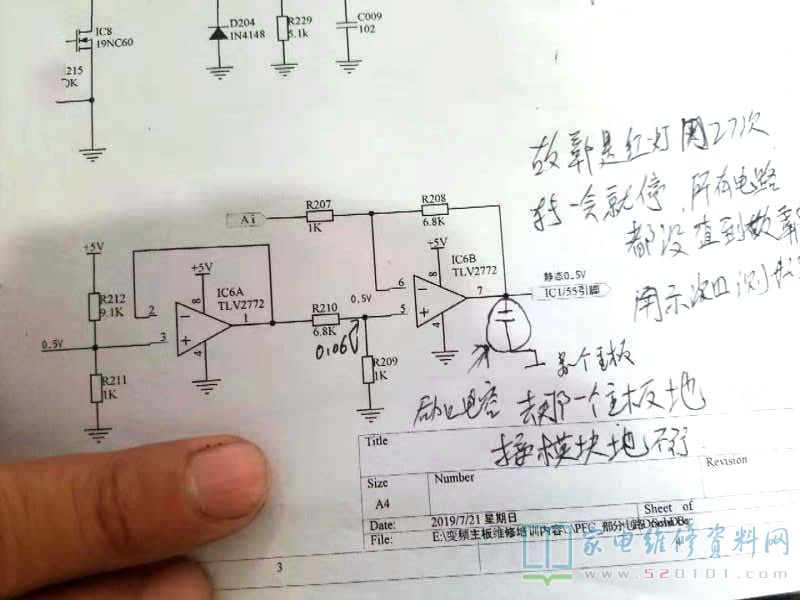 IC8
19NC60
D204
1N4148
R229
5.1k
C009
102
215
0K
故郭是红灯闪27次
转一会就停.所有电路
都没查到故郭
用示波口测
Ai
R207
1K
R208
6.8K
+5V
+5V
+5V
IC6A
TLV2772
IC6B
TLV2772
R212
9.1K
2
3
8
1
4
R210
6.8K
0.5V
0.06V
6
5
8
7
4
静态0.5V
IC1/55引脚
0.5V
R211
1K
R209
1K
个主板
电容 去那一个主板地
接模块地不行.
Title
Size
A4
Number
Revision
Date:
2019/7/21 星期日
Sheet of
File:
E:\变频主板维修培训内容\PFC
3
家电维修资料网
www.520101.com